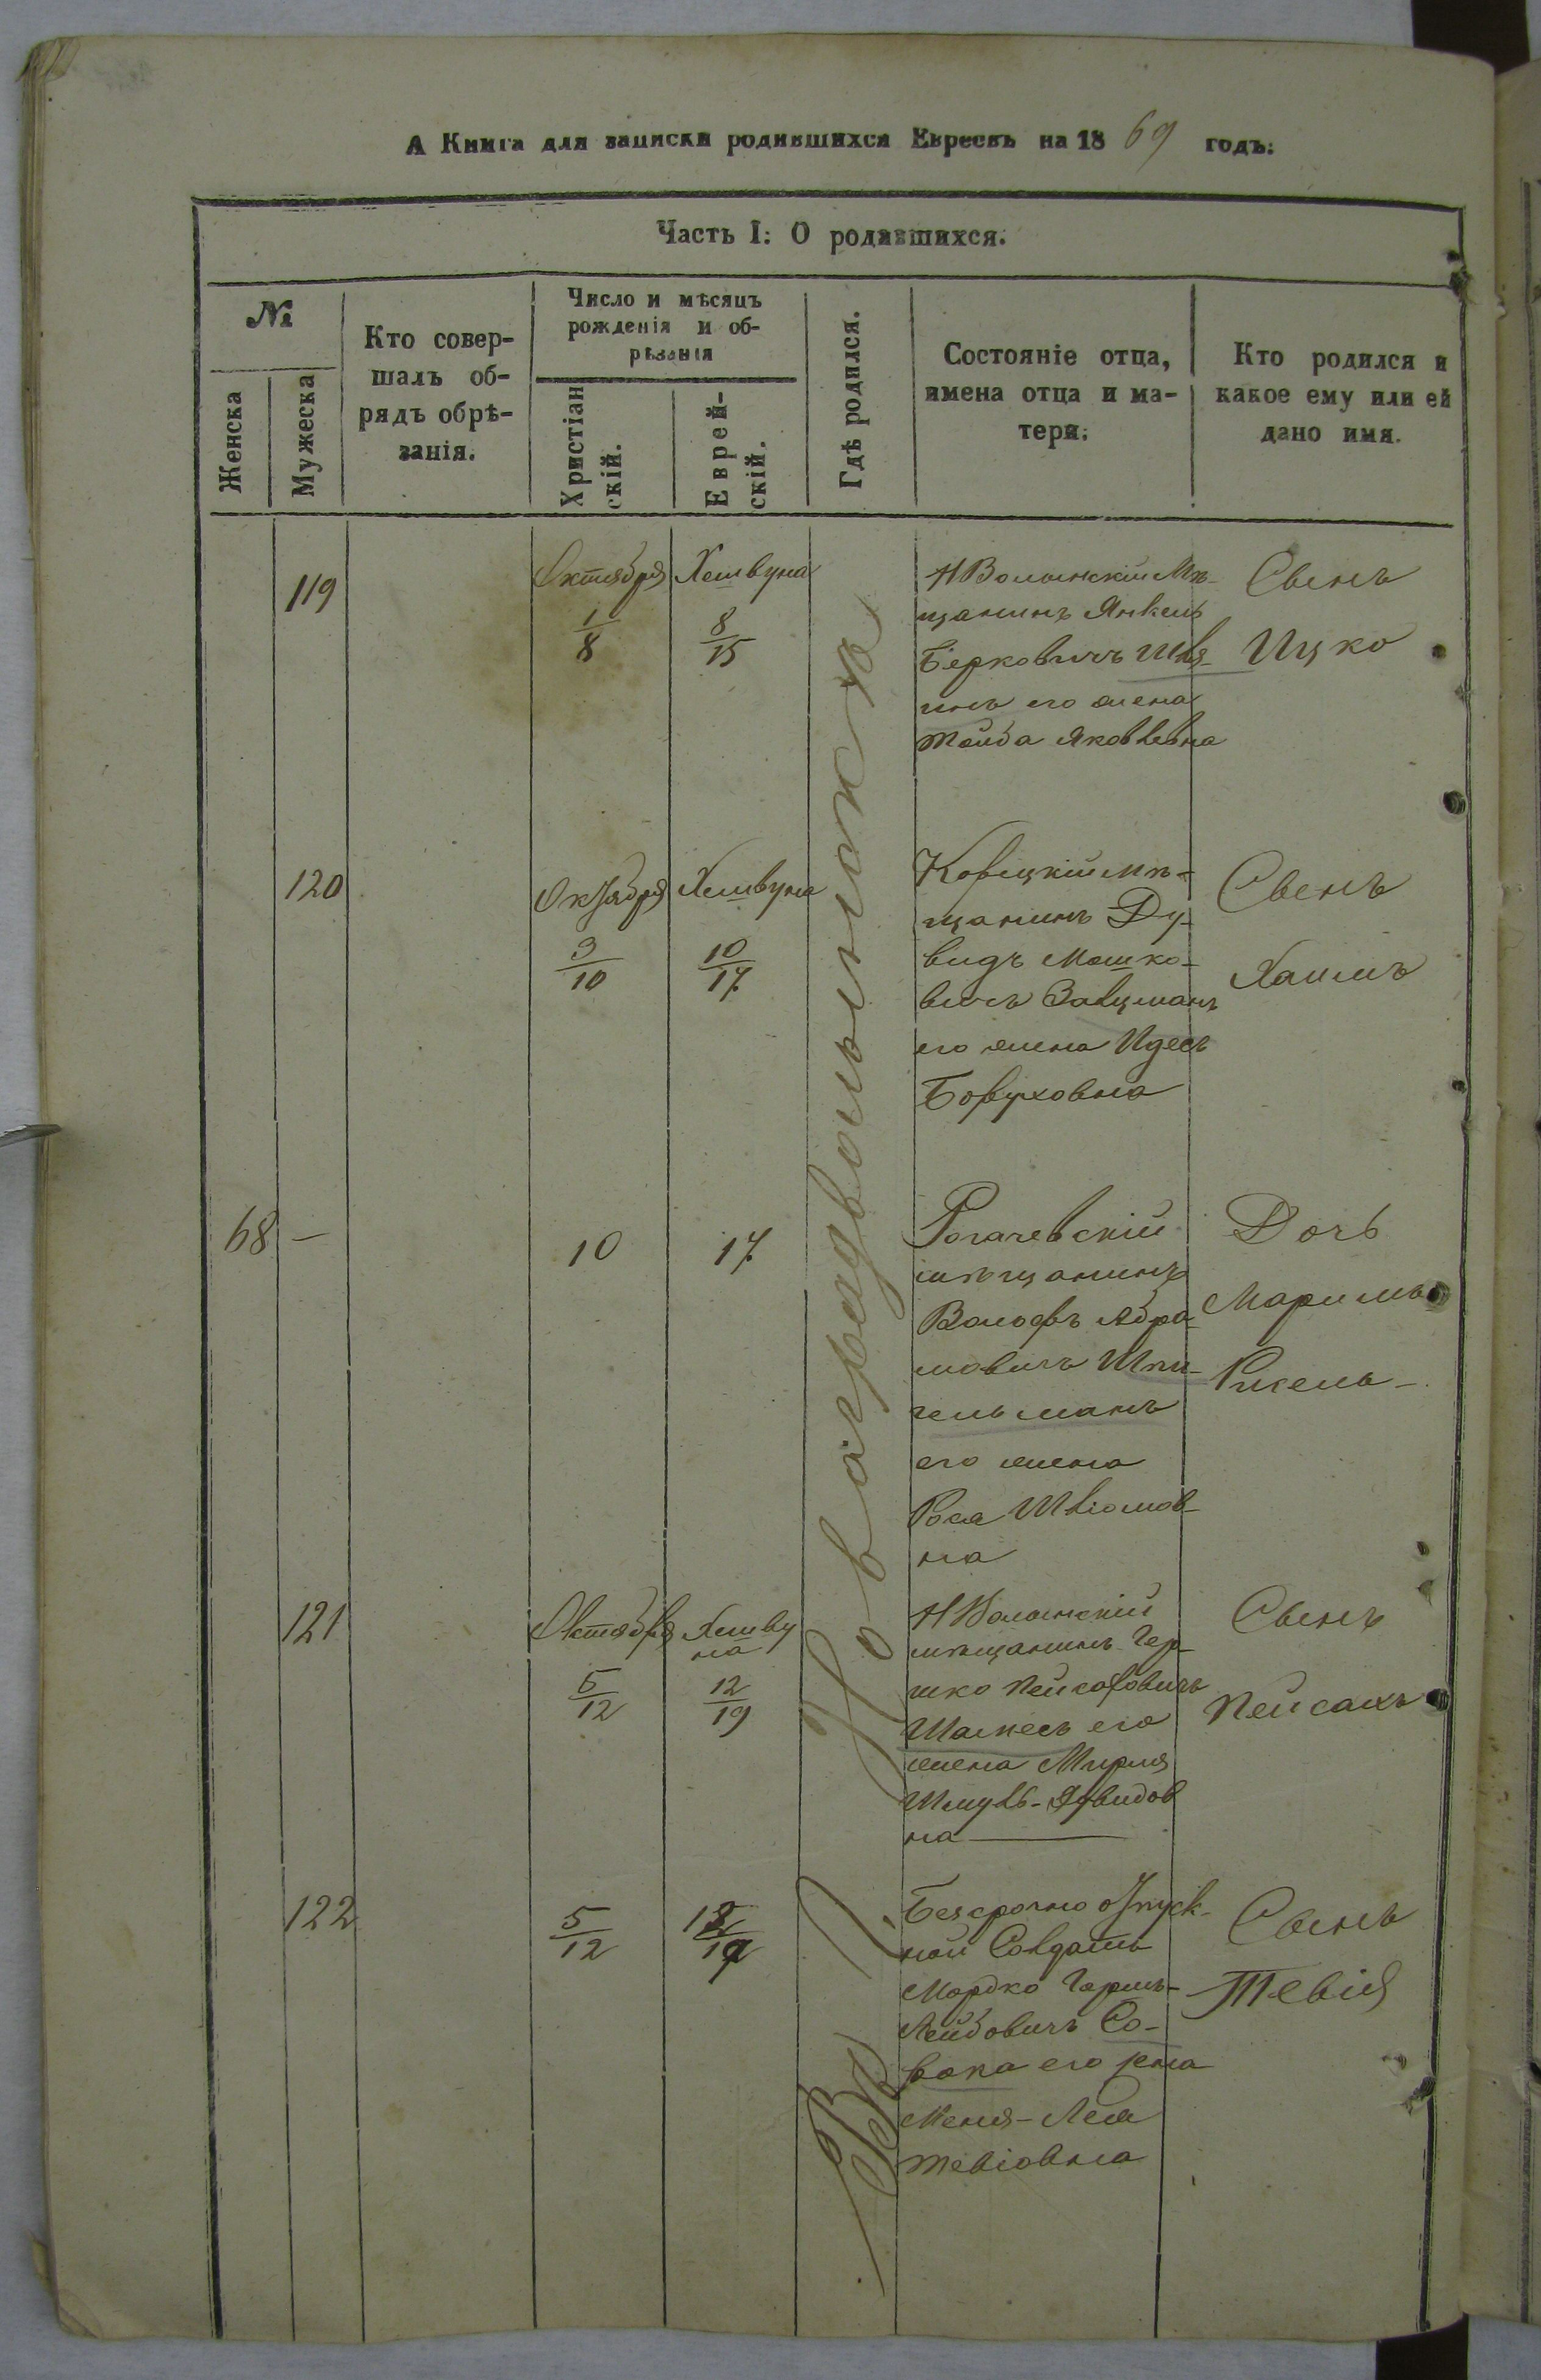 А Книга для записки родившихся Евреевъ на 1869 годъ.
Часть I: О родившихся.
№
Женска
Мужеска
Кто совер-
шалъ об-
рядъ обрѣ-
занія.
Число и мѣсяцъ
рожденія и об-
рѣзанія
Христіан
скій.
Еврей-
скій.
Гдѣ родился.
Состояніе отца,
имена отца и ма-
тери.
Кто родился и
какое ему или ей
дано имя.
В г. Новоградволынскѣ
119
Октября
1/8
Хешвуна
8/15
НВолынскій Мѣ-
щанинъ Янкель
Берковичъ Шля-
его жена
Тойба Яковлевна
Сынъ
Ицко
120
Октября
3/10
Хешвуна
10/17
Корецкій мѣ-
щанинъ Ду-
видъ Мошко-
вичъ Залцманъ
его жена Идесъ
Боруховна
Сынъ
Хаимъ
68 —
10
17
Рогачевскій
мѣщанинъ
Вольфъ Абра-
мовичъ Шпи-
гельманъ
его жена
Рося Шлiомов-
на
Дочь
Маримъ
Рикель
121
Октября
5/12
Хешву
на
12/19
НВолынскій
мѣщанинъ Гер-
шко Пейсаховичъ
Шамесъ его
жена Мирля
Шмуль-Дувидов
на
Сынъ
Пейсахъ
122
5/12
12/19
Безсрочно отпуск-
ной Солдатъ
Мордко Гершъ-
Лейбовичъ Со-
его жена
Меня-Лея
Тевіовна
Сынъ
Тевія